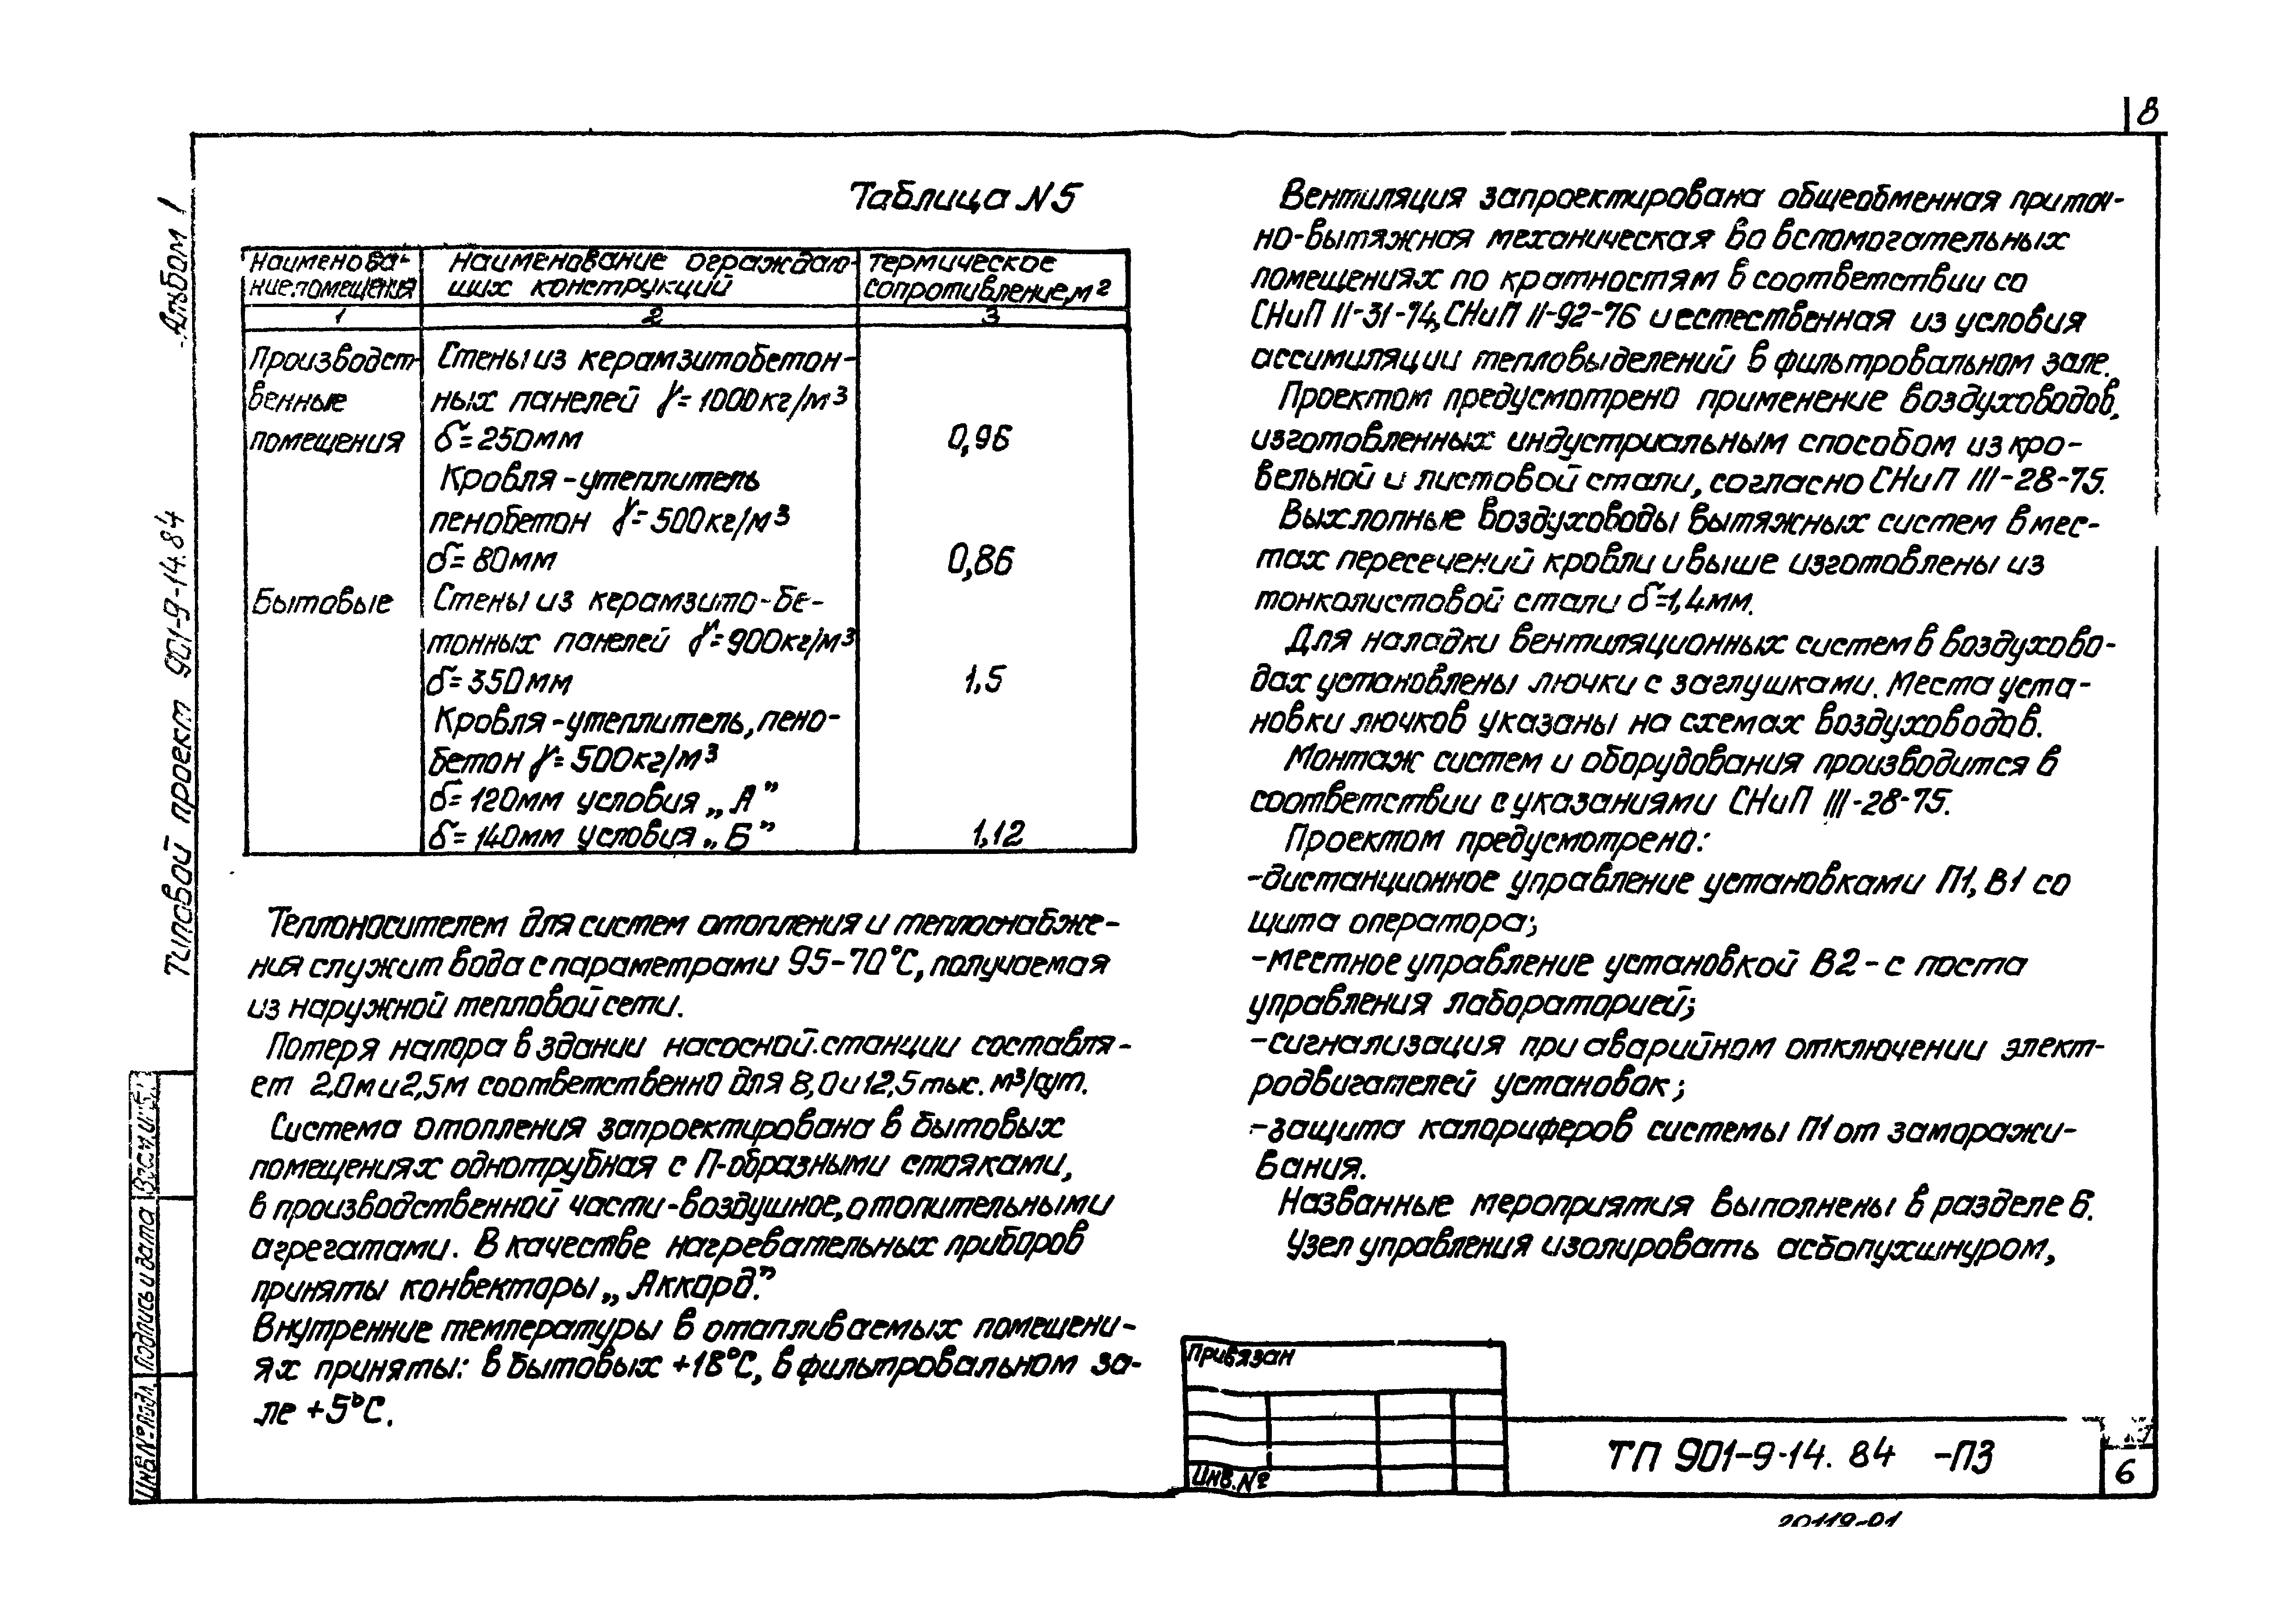 8
Альбом 1
Типовой проект 901-9-14.84
Таблица N5
Наименова-
ние помещения
Наименование ограждаю-
щих конструкций
Термическое
сопротивление, м²
1
2
3
Производст-
венные
помещения
Стены из керамзитобетон-
ных панелей γ=1000кг/м³
δ=250мм
0,96
Кровля-утеплитель
пенобетон γ=500кг/м³
δ=80мм
0,86
Бытовые
Стены из керамзито-бе-
тонных панелей γ=900кг/м³
δ=350мм
1,5
Кровля-утеплитель, пено-
бетон γ=500кг/м³
δ=120мм условия „А"
δ=140мм условия „Б"
1,12
Теплоносителем для систем отопления и теплоснабже-
ния служит вода с параметрами 95-70°С, получаемая
из наружной тепловой сети.
Потеря напора в здании насосной станции составля-
ет 2,0м и 2,5м соответственно для 8,0 и 12,5 тыс. м³/сут.
Система отопления запроектирована в бытовых
помещениях однотрубная с П-образными стояками,
в производственной части-воздушное, отопительными
агрегатами. В качестве нагревательных приборов
приняты конвекторы „Аккорд".
Внутренние температуры в отапливаемых помещени-
ях приняты: в бытовых +18°С, в фильтровальном за-
ле +5°С.
Вентиляция запроектирована общеобменная приточ-
но-вытяжная механическая во вспомогательных
помещениях по кратностям в соответствии со
СНиП II-31-74, СНиП II-92-76 и естественная из условия
ассимиляции тепловыделений в фильтровальном зале.
Проектом предусмотрено применение воздуховодов,
изготовленных индустриальным способом из кро-
вельной и листовой стали, согласно СНиП III-28-75.
Выхлопные воздуховоды вытяжных систем в мес-
тах пересечений кровли и выше изготовлены из
тонколистовой стали δ=1,4мм.
Для наладки вентиляционных систем в воздухово-
дах установлены лючки с заглушками. Места уста-
новки лючков указаны на схемах воздуховодов.
Монтаж систем и оборудования производится в
соответствии с указаниями СНиП III-28-75.
Проектом предусмотрено:
-дистанционное управление установками П1, В1 со
щита оператора;
-местное управление установкой В2-с поста
управления лабораторией;
-сигнализация при аварийном отключении элект-
родвигателей установок;
-защита калориферов системы П1 от заморажи-
вания.
Названные мероприятия выполнены в разделе 6.
Узел управления изолировать асбопухшнуром,
Привязан
Инв. №
ТП 901-9-14. 84 -ПЗ
6
Взам. инв.
Подпись и дата
Инв № подл.
20119-01